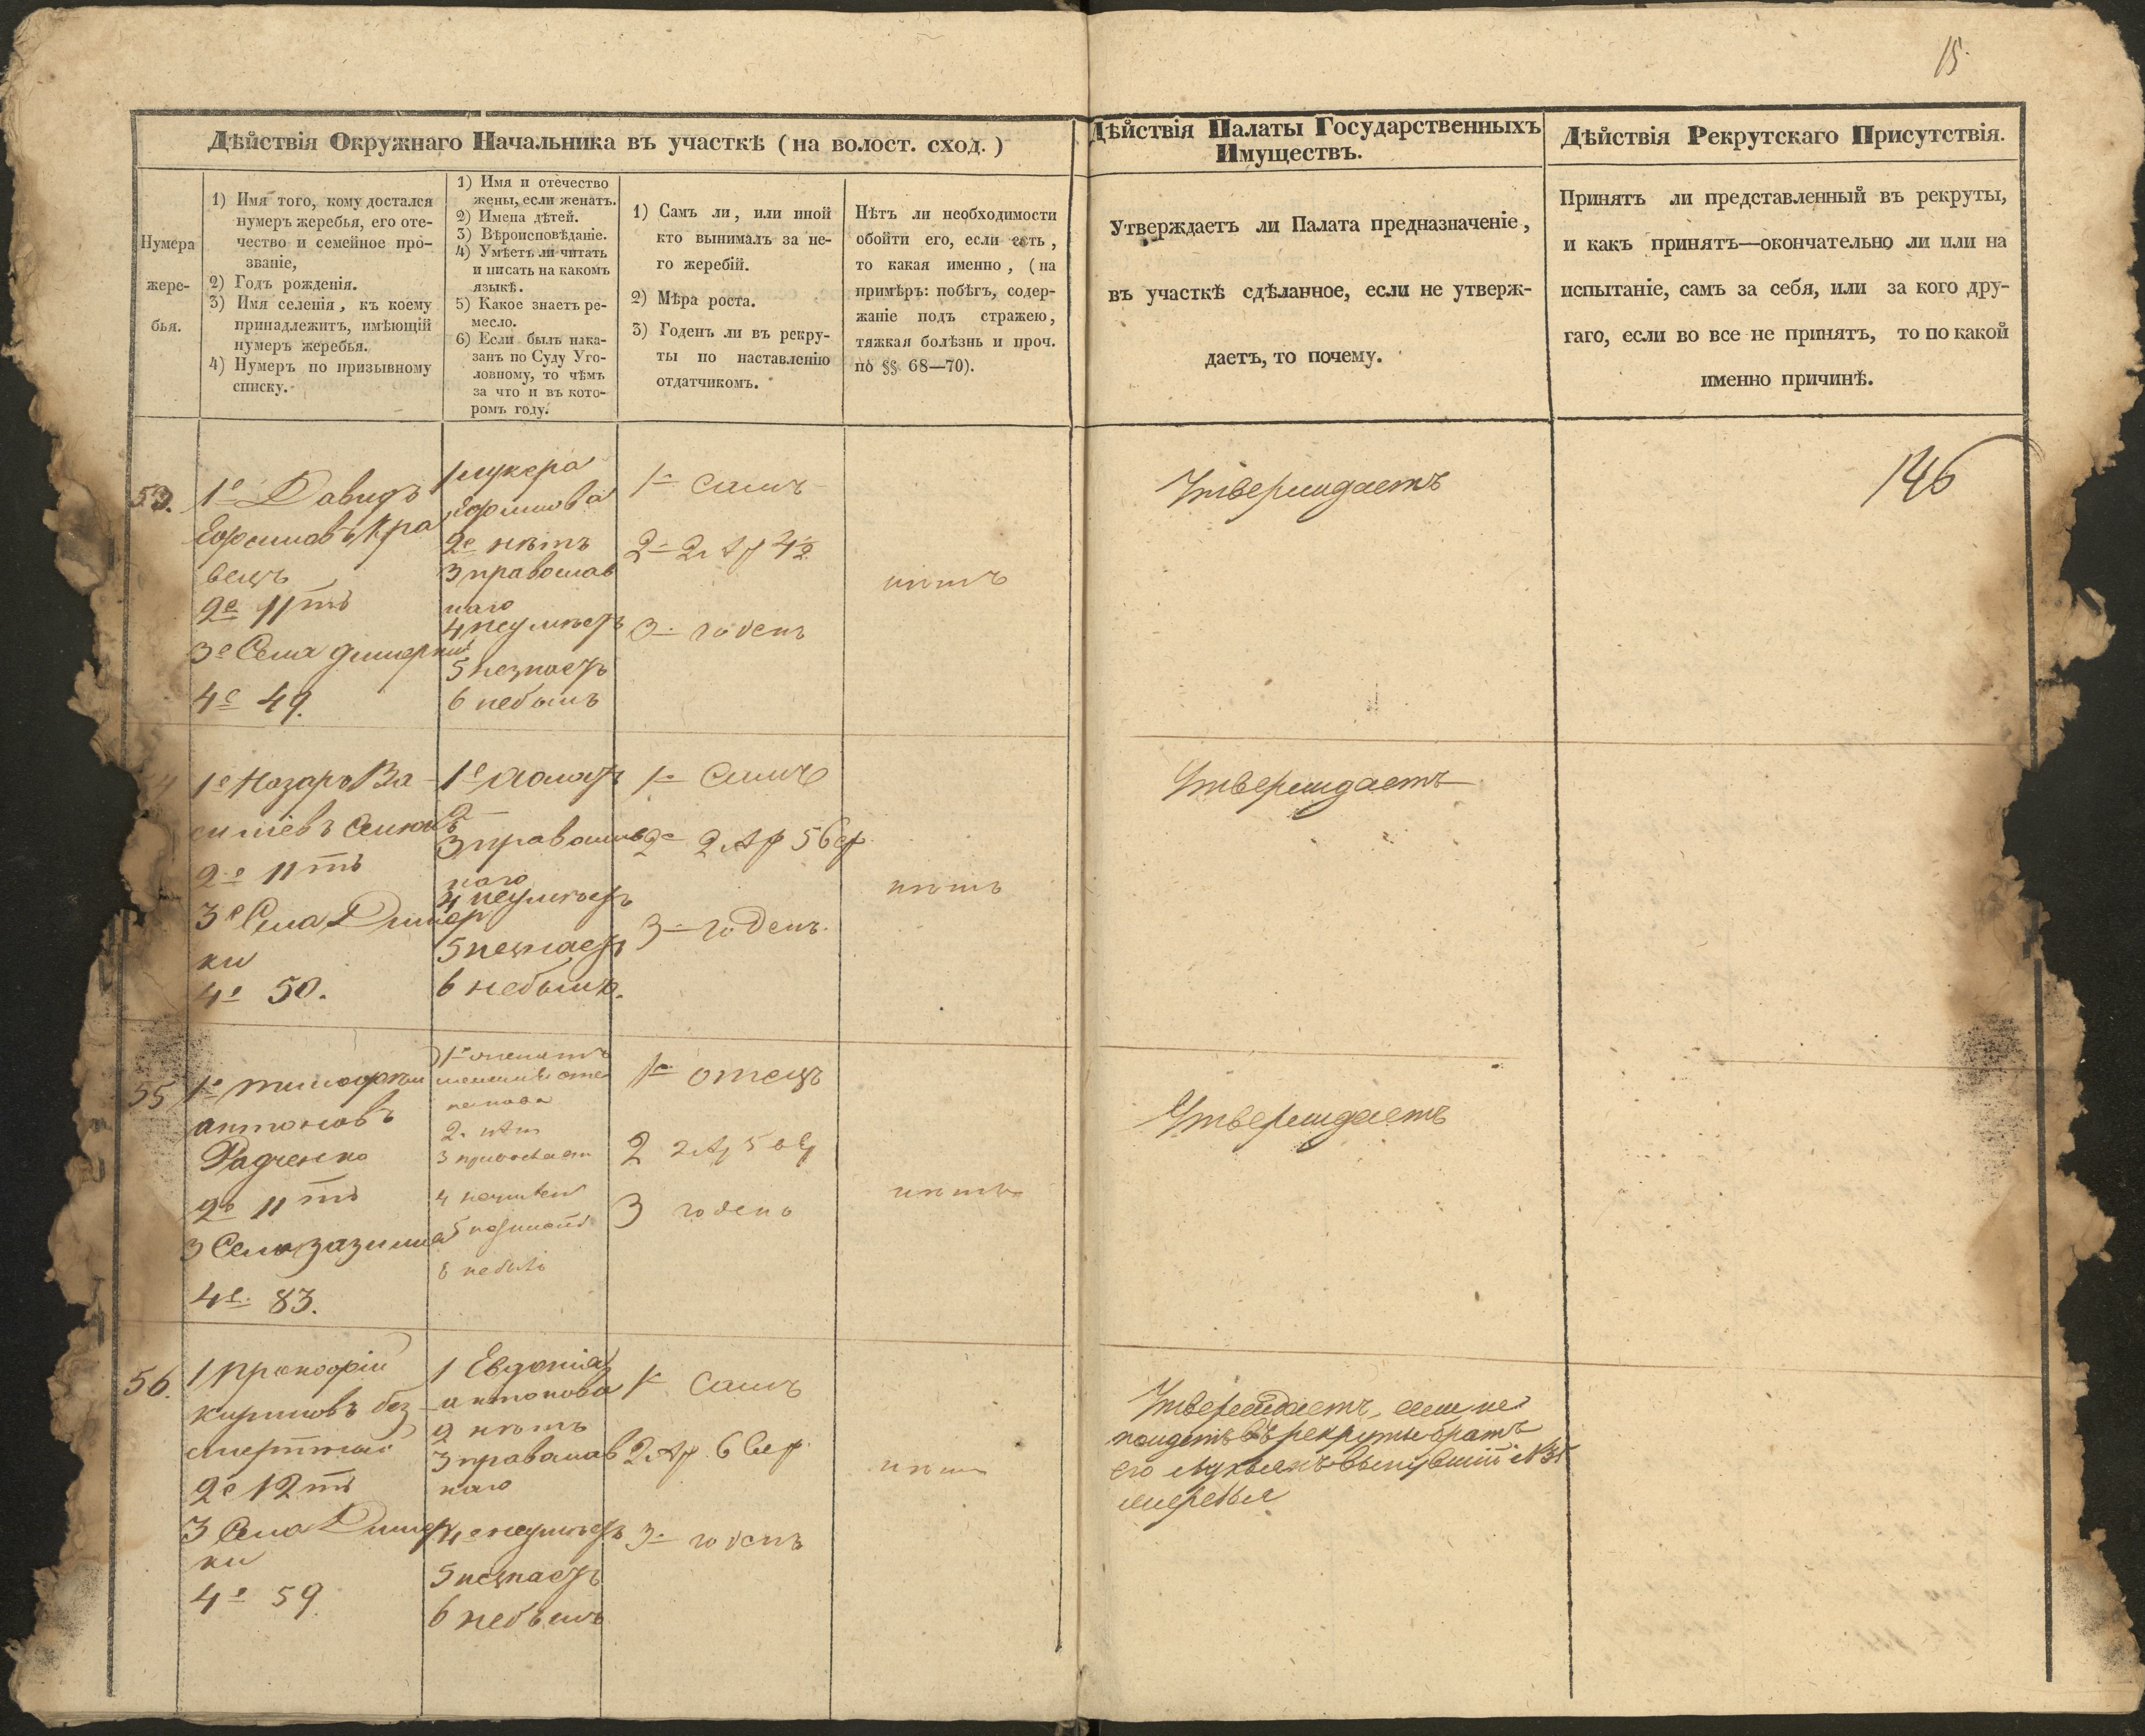 15.
Дѣйствія Окружнаго Начальника въ участкѣ (на волост. сход.)
Дѣйствія Палаты Государственныхъ
Имуществъ.
Дѣйствія Рекрутскаго Присутствія.
Нумера
жере-
бья.
1) Имя того, кому достался
нумеръ жеребья, его оте-
чество и семейное про-
званіе,
2) Годъ рожденія.
3) Имя селенія, къ коему
принадлежитъ, имѣющій
нумеръ жеребья.
4) Нумеръ по призывному
списку.
1) Имя и отечество
жены, если женатъ.
2) Имена дѣтей.
3) Вѣроисповѣданіе.
4) Умѣетъ ли читать
и писать на какомъ
языкѣ.
5) Какое знаетъ ре-
месло.
6) Если былъ нака-
занъ по Суду Уго-
ловному, то чѣмъ
за что и въ кото-
ромъ году.
1) Самъ ли, или иной
кто вынималъ за не-
го жеребій.
2) Мѣра роста.
3) Годенъ ли въ рекру-
ты по наставленію
отдатчикомъ.
Нѣтъ ли необходимости
обойти его, если есть,
то какая именно, (на
примѣръ: побѣгъ, содер-
жаніе подъ стражею,
тяжкая болѣзнь и проч.
по §§ 68—70).
Утверждаетъ ли Палата предназначеніе,
въ участкѣ сдѣланное, если не утверж-
даетъ, то почему.
Принятъ ли представленный въ рекруты,
и какъ принятъ—окончательно ли или на
испытаніе, самъ за себя, или за кого дру-
гаго, если во все не принятъ, то по какой
именно причинѣ.
53.
1е Давидъ
Ефимовъ Кра
вецъ
2е 11тъ
3е Села Димерки
4е 49.
1 лукера
Ефимова
2е нѣтъ
3 православ
наго
4 неумѣетъ
5 незнаетъ
6 небылъ
1е самъ
2е 2 Ар 4½
3е годенъ
нѣтъ
Утверждаетъ
146
1е Назаръ Ва
силіевъ
2е 11тъ
3е Села Димер
ки
4е 50.
1е холостъ
2 —
3 православ
наго
4 неумѣетъ
5 незнаетъ
6 небылъ.
1е Самъ
2е 2 Ар 5 вер
3е годенъ.
нѣтъ
Утверждаетъ
55
1е тимофѣй
антоновъ
Радченко
2е 11тъ
3 Села зазимья
4е 83.
1е женатъ
2. нѣт
3 православн
4 неумѣет
5 незнаетъ
6 небылъ
1е отецъ
2 2 Ар 5 вер
3 годенъ
нѣтъ
Утверждаетъ
56.
1 прокофій
кириловъ без
смертный
2е 12тъ
3 Села Димер
ки
4е 59
1 Евдокія
антонова
2 нѣтъ
3 православ
наго
4е неумѣетъ
5 незнаетъ
6 небылъ
1е Самъ
2 Ар 6 вер
3е годенъ
нѣтъ
Утверждаетъ, если не
пойдетъ въ рекруты братъ
его Лукьянъ вынувшій №
жеребья